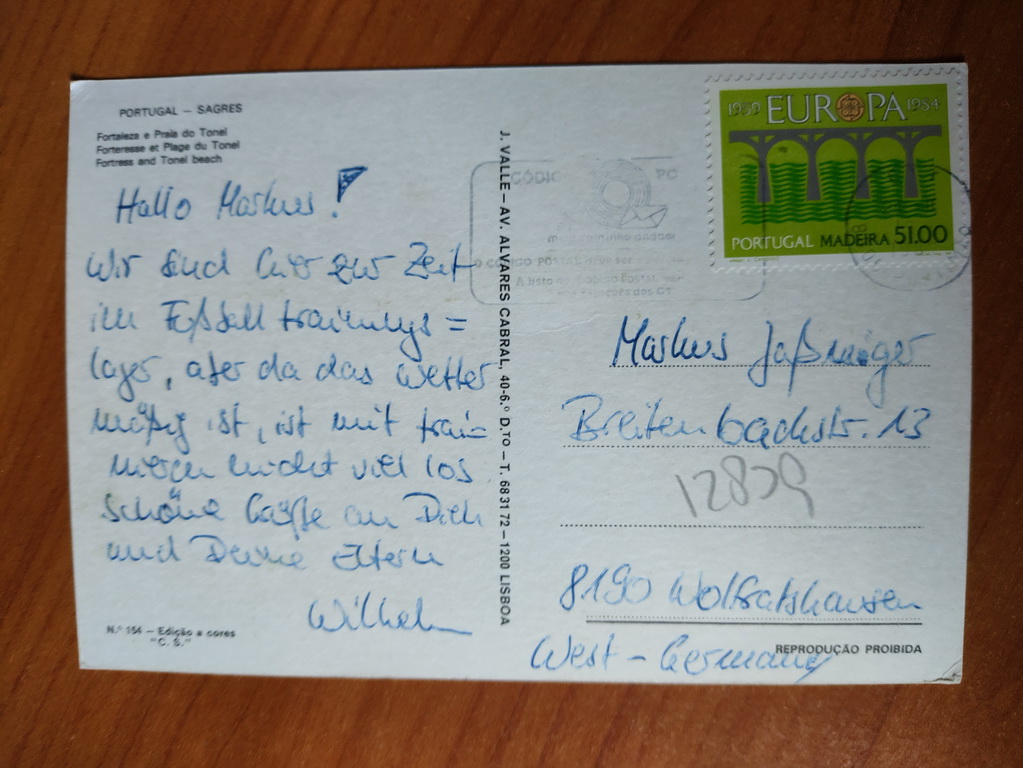 PORTUGAL – SAGRES
Fortaleza e Praia do Tonel
Forteresse et Plage du Tonel
Fortress and Tonel beach
Hallo Markus!
Wir sind hier zur Zeit
im Fußball trainings=
lager, aber da das Wetter
mäßig ist, ist mit trai=
nieren nicht viel los
schöne Grüße an Dich
und Deine Eltern
Wilhelm
N.º 154 – Edição a cores
"C. S."
J. VALLE – AV. ALVARES CABRAL, 40-6.º D.TO – T. 683172 – 1200 LISBOA
CÓDIGO
PC
1959 EUROPA 1984
PORTUGAL MADEIRA 51.00
Markus
Breitenbachstr. 13
12839
8190 Wolfratshausen
West-Germany
REPRODUÇÃO PROIBIDA